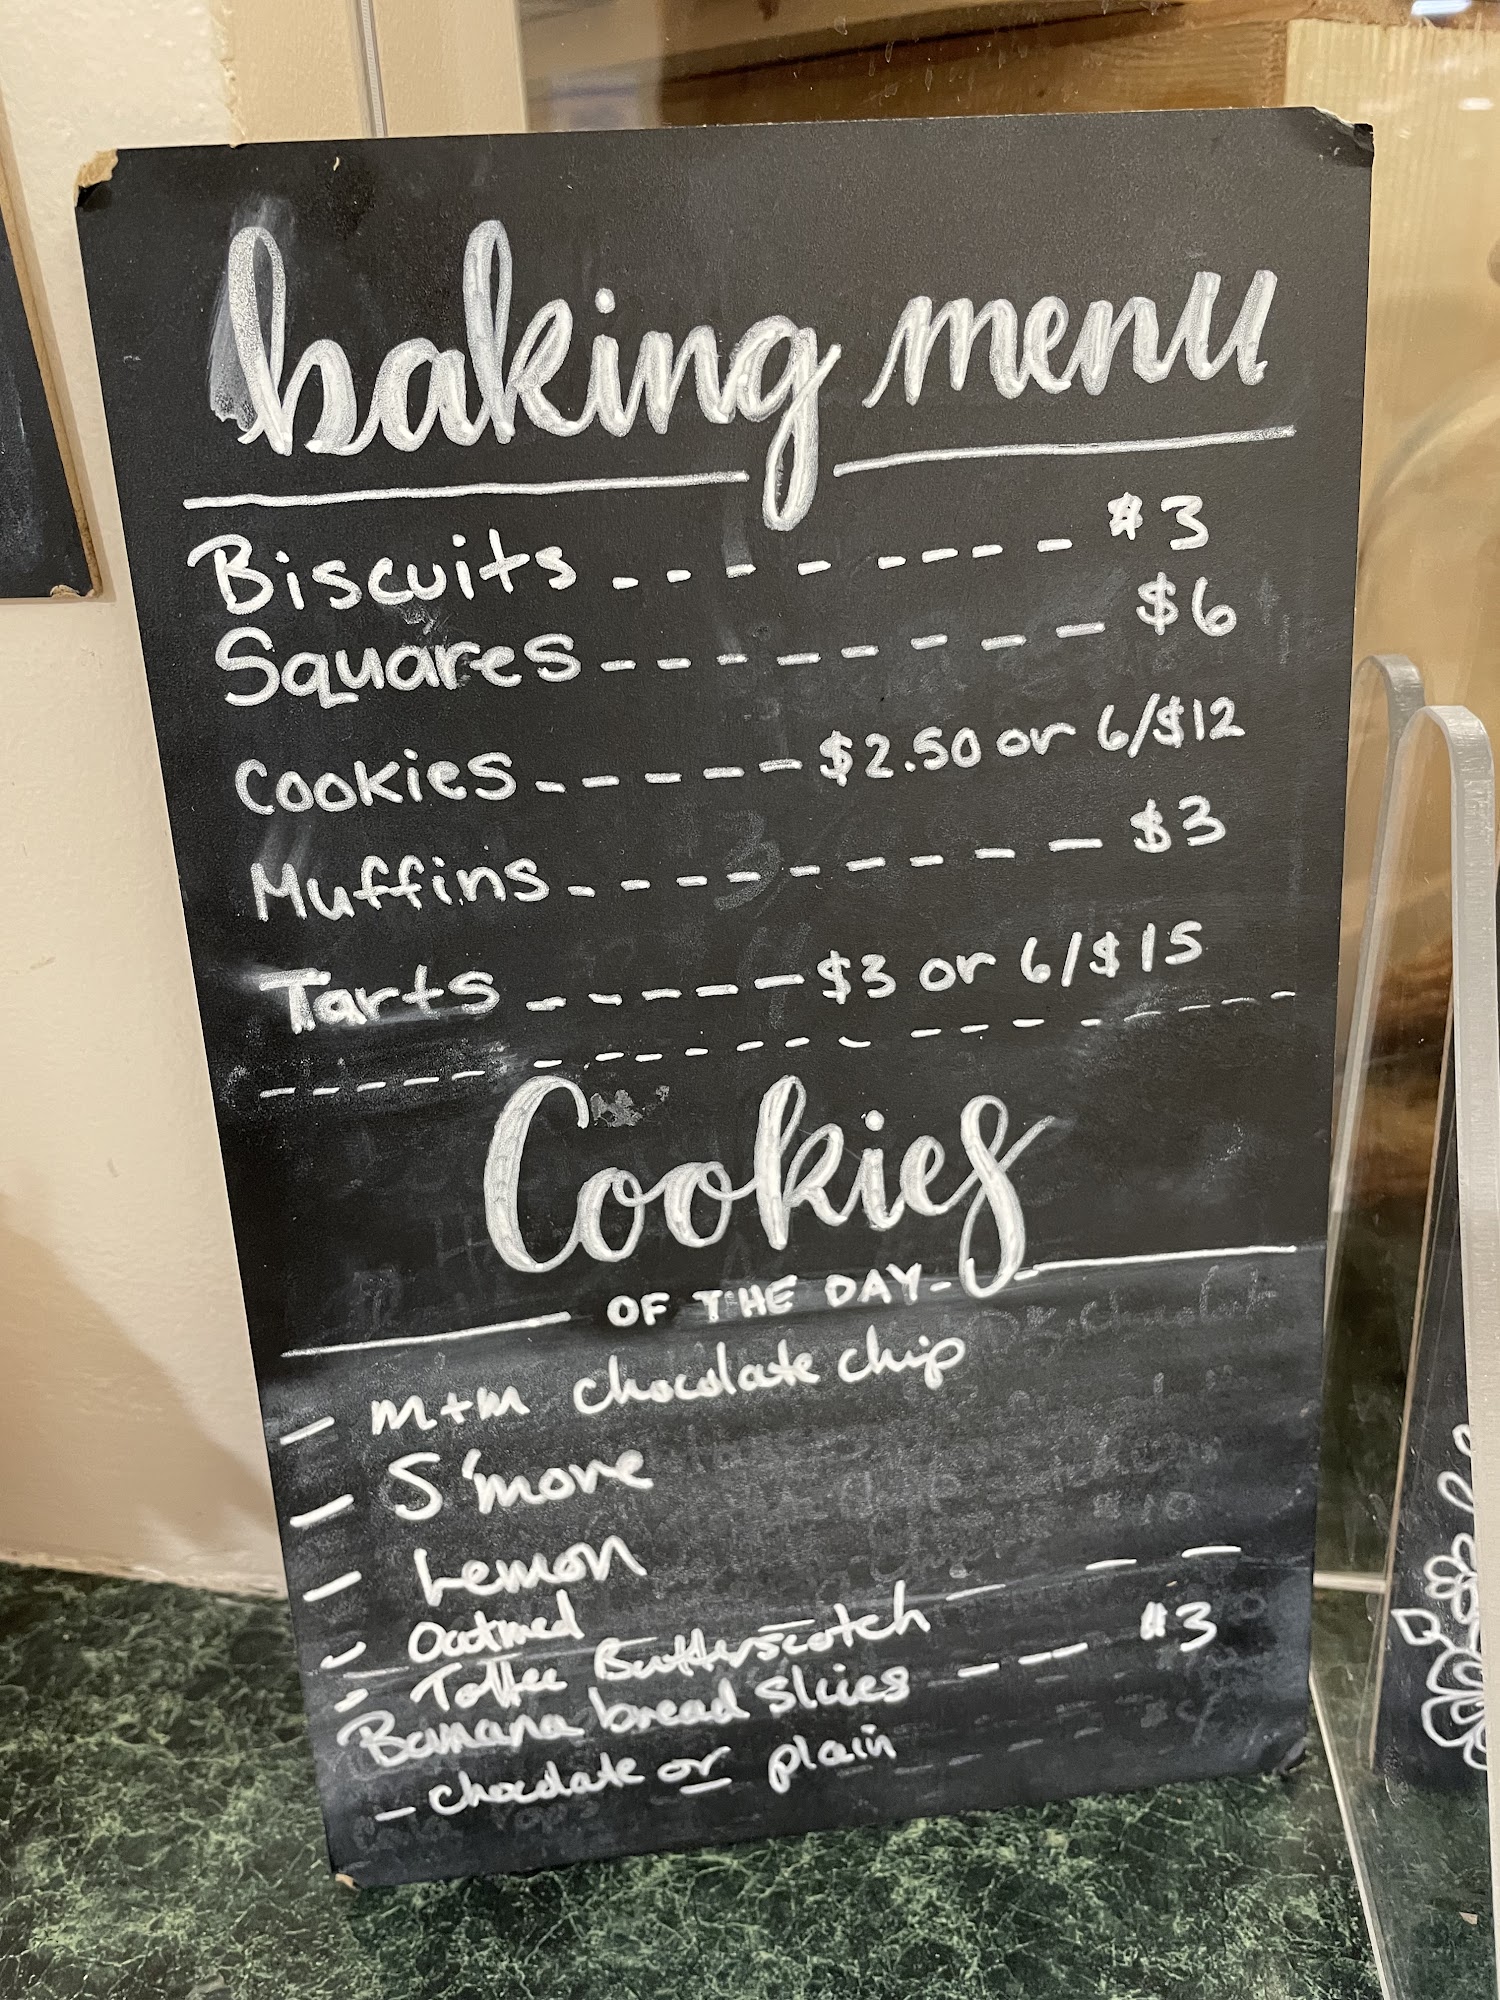 baking menu
Biscuits - - - - - - - - - $3
Squares - - - - - - - - $6
Cookies - - - - - $2.50 or 6/$12
Muffins - - - - - - - - - $3
Tarts - - - - - $3 or 6/$15
Cookies
OF THE DAY
- m+m chocolate chip
- S'more
- Lemon
- Oatmeal
- Toffee Butterscotch
Banana bread slices - - - $3
- chocolate or plain